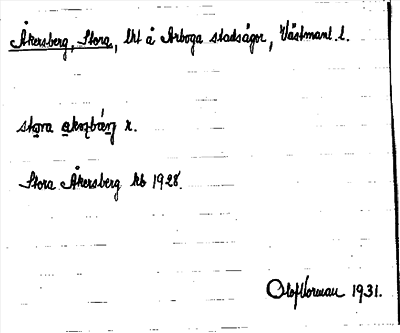 Åkersberg, Stora, lht å Arboga stadsägor, Västmanl. l.
stora
Stora Åkersberg kb 1928.
Olof Vorman 1931.